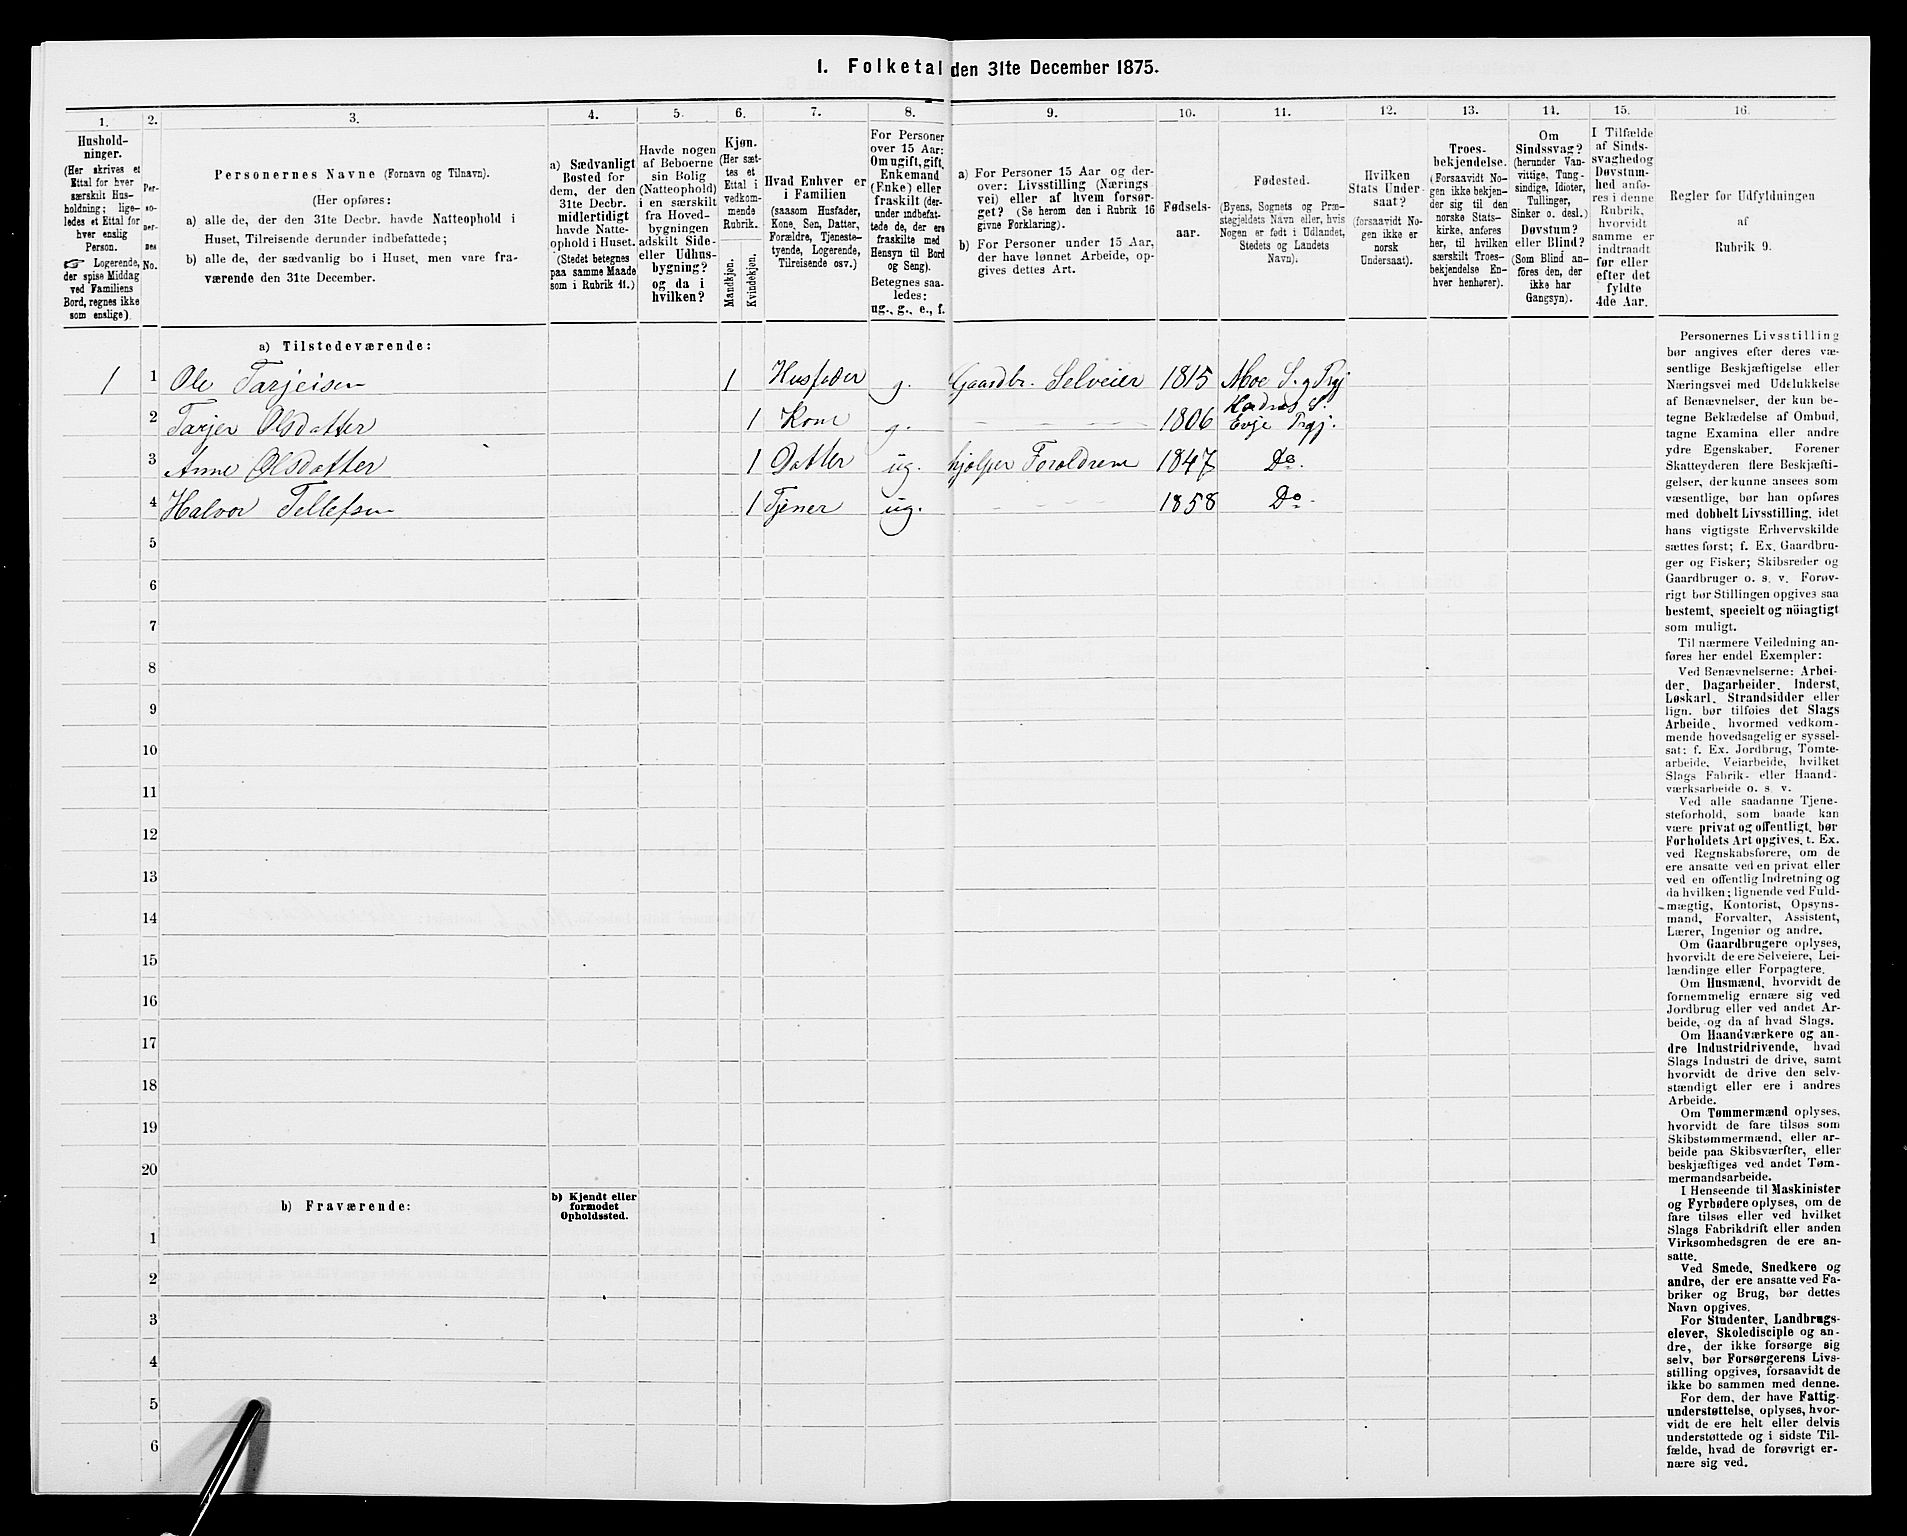 1. Folketal den 31te December 1875.
1. 2. 3. 4. 5. 6. 7. 8. 9. 10. 11. 12. 13. 14. 15. 16.
Hushold-
ninger.
(Her skrives et
Ettal for hver
særskilt Hus-
holdning; lige-
ledes et Ettal for
hver enslig
Person.
☞ Logerende,
der spise Middag
ved Familiens
Bord, regnes ikke
som enslige)
Per-
so-
ner-
nes
No.
Personernes Navne (Fornavn og Tilnavn).
(Her opføres:
a) alle de, der den 31te Decbr. havde Natteophold i
Huset, Tilreisende derunder indbefattede;
b) alle de, der sædvanlig bo i Huset, men vare fra-
værende den 31te December.
a) Sædvanligt
Bosted for
dem, der den
31te Decbr.
midlertidigt
havde Natte-
ophold i Huset.
(Stedet betegnes
paa samme Maade
som i Rubrik 11.)
Havde nogen
af Beboerne
sin Bolig
(Natteophold)
i en særskilt
fra Hoved-
bygningen
adskilt Side-
eller Udhus-
bygning?
og da i
hvilken?
Kjøn.
(Her sæt-
tes et
Ettal i
vedkom-
mende
Rubrik.
Mandkjøn.
Kvindekjøn.
Hvad Enhver er
i Familien
(saasom Husfader,
Kone, Søn, Datter,
Forældre, Tjeneste-
tyende, Logerende,
Tilreisende osv.)
For Personer
over 15 Aar:
Om ugift, gift,
Enkemand
(Enke) eller
fraskilt (der-
under indbefat-
tede de, der ere
fraskilte med
Hensyn til Bord
og Seng).
Betegnes saa-
ledes:
ug., g., e., f.
a) For Personer 15 Aar og der-
over: Livsstilling (Nærings-
vei) eller af hvem forsør-
get? (Se herom den i Rubrik 16
givne Forklaring).
b) For Personer under 15 Aar,
der have lønnet Arbeide, op-
gives dettes Art.
Fødsels-
aar.
Fødested.
(Byens, Sognets og Præ-
stegjeldets Navn eller, hvis
Nogen er født i Udlandet,
Stedets og Landets
Navn).
Hvilken
Stats Under-
saat?
(forsaavidt No-
gen ikke er
norsk
Undersaat).
Troes-
bekjendelse.
(Forsaavidt No-
gen ikke bekjen-
der sig til den
norske Stats-
kirke, anføres
her, til hvilken
særskilt Troes-
bekjendelse En-
hver henhører).
Om
Sindssvag?
(herunder Van-
vittige, Tung-
sindige, Idioter,
Tullinger,
Sinker o. desl.)
Døvstum?
eller Blind?
(Som Blind an-
føres den, der
ikke har
Gangsyn).
I Tilfælde
af Sinds-
svaghed og
Døvstum-
hed anfø-
res i denne
Rubrik,
hvorvidt
samme er
indtraadt
før eller
efter det
fyldte
4de Aar.
Regler for Udfyldningen
af
Rubrik 9.
a) Tilstedeværende:
1 1 Ole Tarjeisen 1 Husfader g. Gaardbr. Selveier 1815 Moe S. og Prgj
2 Tarjer Olsdatter 1 Kone g. 1806 Hodnes S. Evje Prgj.
3 Anne Olsdatter 1 Datter ug. hjælper Forældrene 1847 Do.
4 Halvor Tellefsen 1 Tjener ug. 1858 Do.
5
6
7
8
9
10
11
12
13
14
15
16
17
18
19
20
b) Fraværende:
b) Kjendt eller
formodet
Opholdssted.
1
2
3
4
5
6
Personernes Livsstilling
bør angives efter deres væ-
sentlige Beskjæftigelse eller
Næringsvei med Udelukkelse
af Benævnelser, der kun be-
tegne Beklædelse af Ombud,
tagne Examina eller andre
ydre Egenskaber. Forener
Skatteyderen flere Beskjæfti-
gelser, der kunne ansees som
væsentlige, bør han opføres
med dobbelt Livsstilling, idet
hans vigtigste Erhvervskilde
sættes først; f. Ex. Gaardbru-
ger og Fisker; Skibsreder og
Gaardbruger o. s. v. Forøv-
rigt bør Stillingen opgives saa
bestemt, specielt og nöiagtigt
som muligt.
Til nærmere Veiledning an-
føres her endel Exempler:
Ved Benævnelserne: Arbei-
der, Dagarbeider, Inderst,
Løskarl, Strandsidder eller
lign. bør tilføies det Slags
Arbeide, hvormed vedkom-
mende hovedsagelig er syssel-
sat; f. Ex. Jordbrug, Tomte-
arbeide, Veiarbeide, hvilket
Slags Fabrik- eller Haand-
værksarbeide o. s. v.
Ved alle saadanne Tjene-
steforhold, som baade kan
være privat og offentligt, bør
Forholdets Art opgives, t. Ex.
ved Regnskabsførere, om de
ere ansatte ved en privat eller
ved en offentlig Indretning og
da hvilken; lignende ved Fuld-
mægtig, Kontorist, Opsyns-
mand, Forvalter, Assistent,
Lærer, Ingeniør og andre.
Om Gaardbrugere oplyses,
hvorvidt de ere Selveiere, Lei-
lændinge eller Forpagtere.
Om Husmænd, hvorvidt de
fornemmelig ernære sig ved
Jordbrug eller ved andet Ar-
beide, og da af hvad Slags.
Om Haandværkere og an-
dre Industridrivende, hvad
Slags Industri de drive, samt
hvorvidt de drive den selv-
stændigt eller ere i andres
Arbeide.
Om Tømmermænd oplyses,
hvorvidt de fare tilsøs som
Skibstømmermænd, eller ar-
beide paa Skibsværfter, eller
beskjæftiges ved andet Tøm-
mermandsarbeide.
I Henseende til Maskinister
og Fyrbødere oplyses, om de
fare tilsøs eller ved hvilket
Slags Fabrikdrift eller anden
Virksomhedsgren de ere an-
satte.
Ved Smede, Snedkere og
andre, der ere ansatte ved Fa-
briker og Brug, bør dettes
Navn opgives.
For Studenter, Landbrugs-
elever, Skoledisciple og an-
dre, der ikke forsørge sig
selv, bør Forsørgerens Livs-
stilling opgives, forsaavidt de
ikke bo sammen med denne.
For dem, der have Fattig-
understøttelse, oplyses, hvor-
vidt de ere helt eller delvis
understøttede og i sidste Til-
fælde, hvad de forøvrigt er-
nære sig ved.